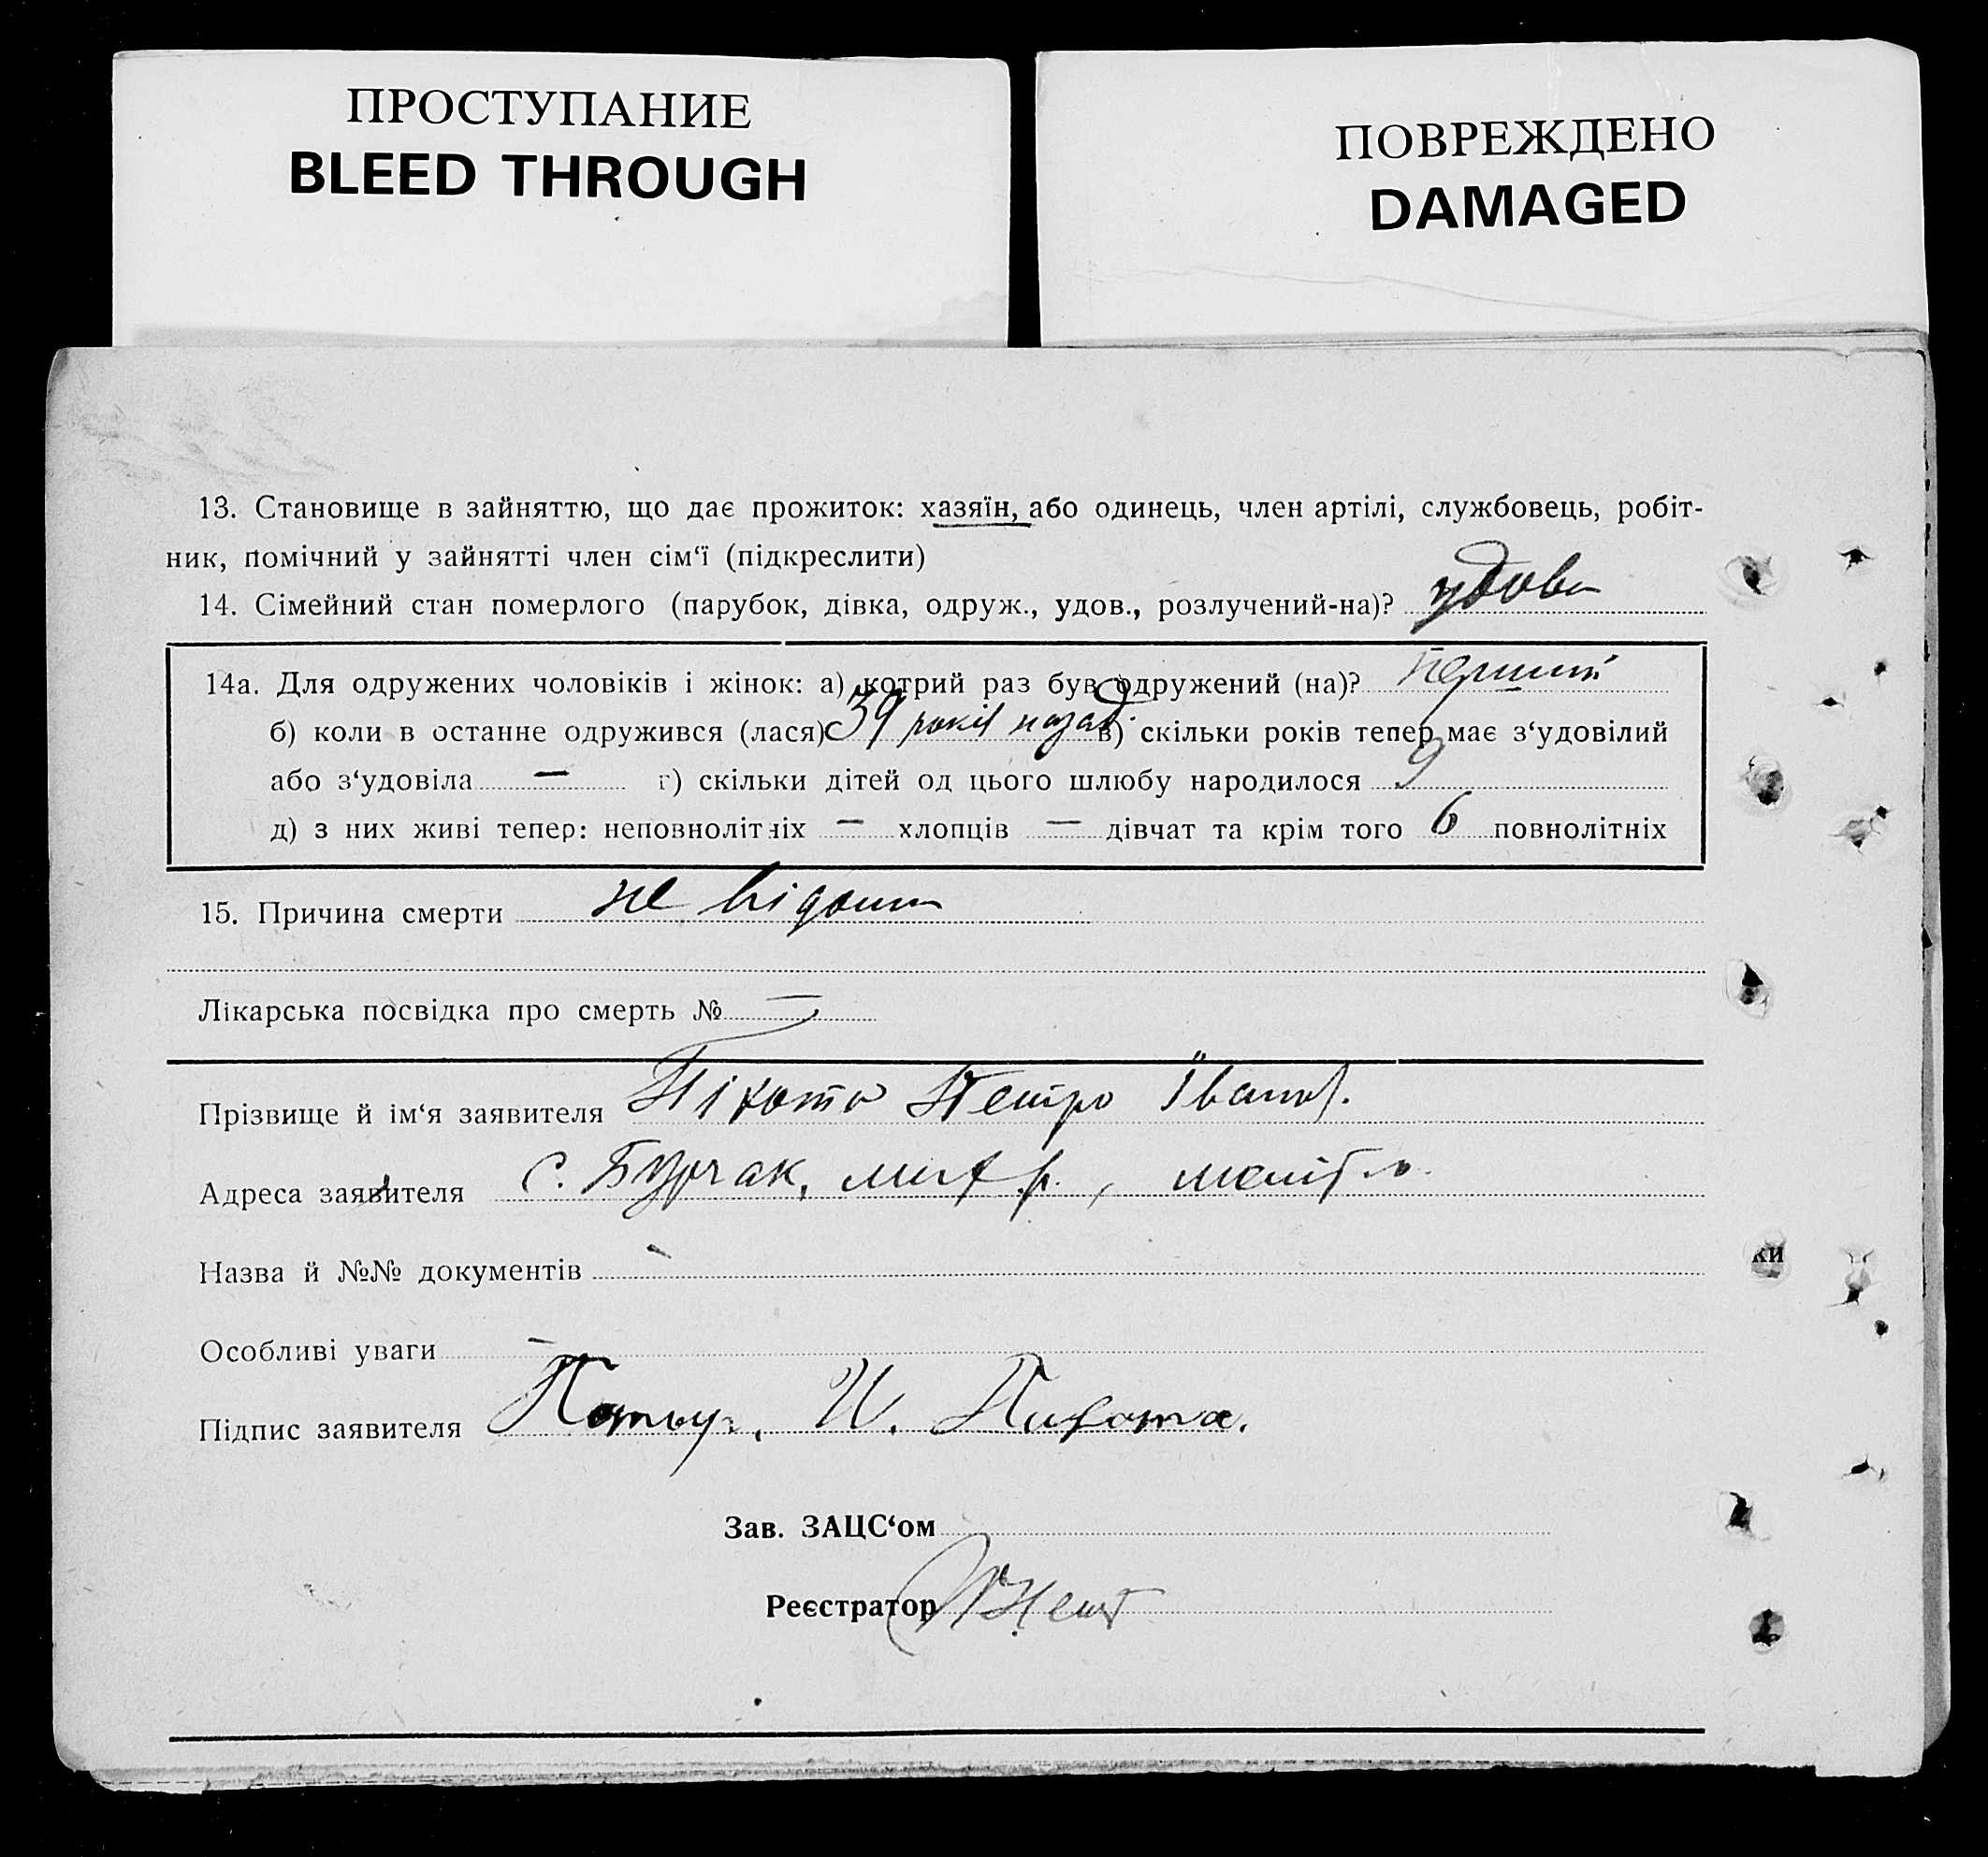 ПРОСТУПАНИЕ
BLEED THROUGH
ПОВРЕЖДЕНО
DAMAGED
13. Становище в зайняттю, що дає прожиток: хазяїн, або одинець, член артілі, службовець, робіт-
ник, помічний у зайнятті член сім‘ї (підкреслити)
14. Сімейний стан померлого (парубок, дівка, одруж., удов., розлучений-на)? удова
14а. Для одружених чоловіків і жінок: а) котрий раз був одружений (на)? перший
б) коли в останне одружився (лася) 39 років назад в) скільки років тепер має з‘удовілий
або з‘удовіла — г) скільки дітей од цього шлюбу народилося 9
д) з них живі тепер: неповнолітніх — хлопців — дівчат та крім того 6 повнолітніх
15. Причина смерти не відома
Лікарська посвідка про смерть № —
Прізвище й ім‘я заявителя Піхота Петро Іванов.
Адреса заявителя с. Бурчак, мих. р.,
Назва й №№ документів —
Особливі уваги —
Підпис заявителя И. Пихота.
Зав. ЗАЦС‘ом
Реєстратор
ки